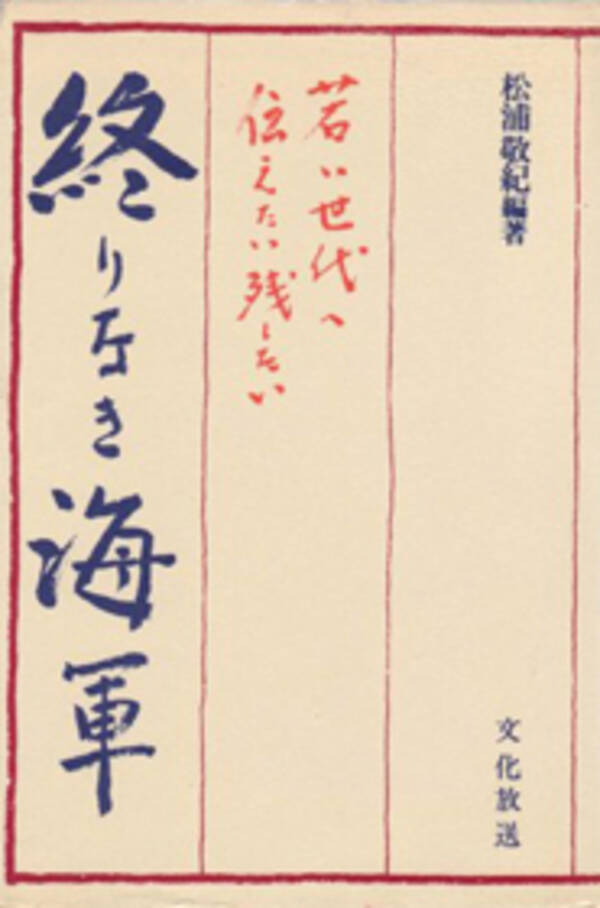 松浦敬紀編著
文化放送
若い世代へ
伝えたい残したい
終りなき海軍